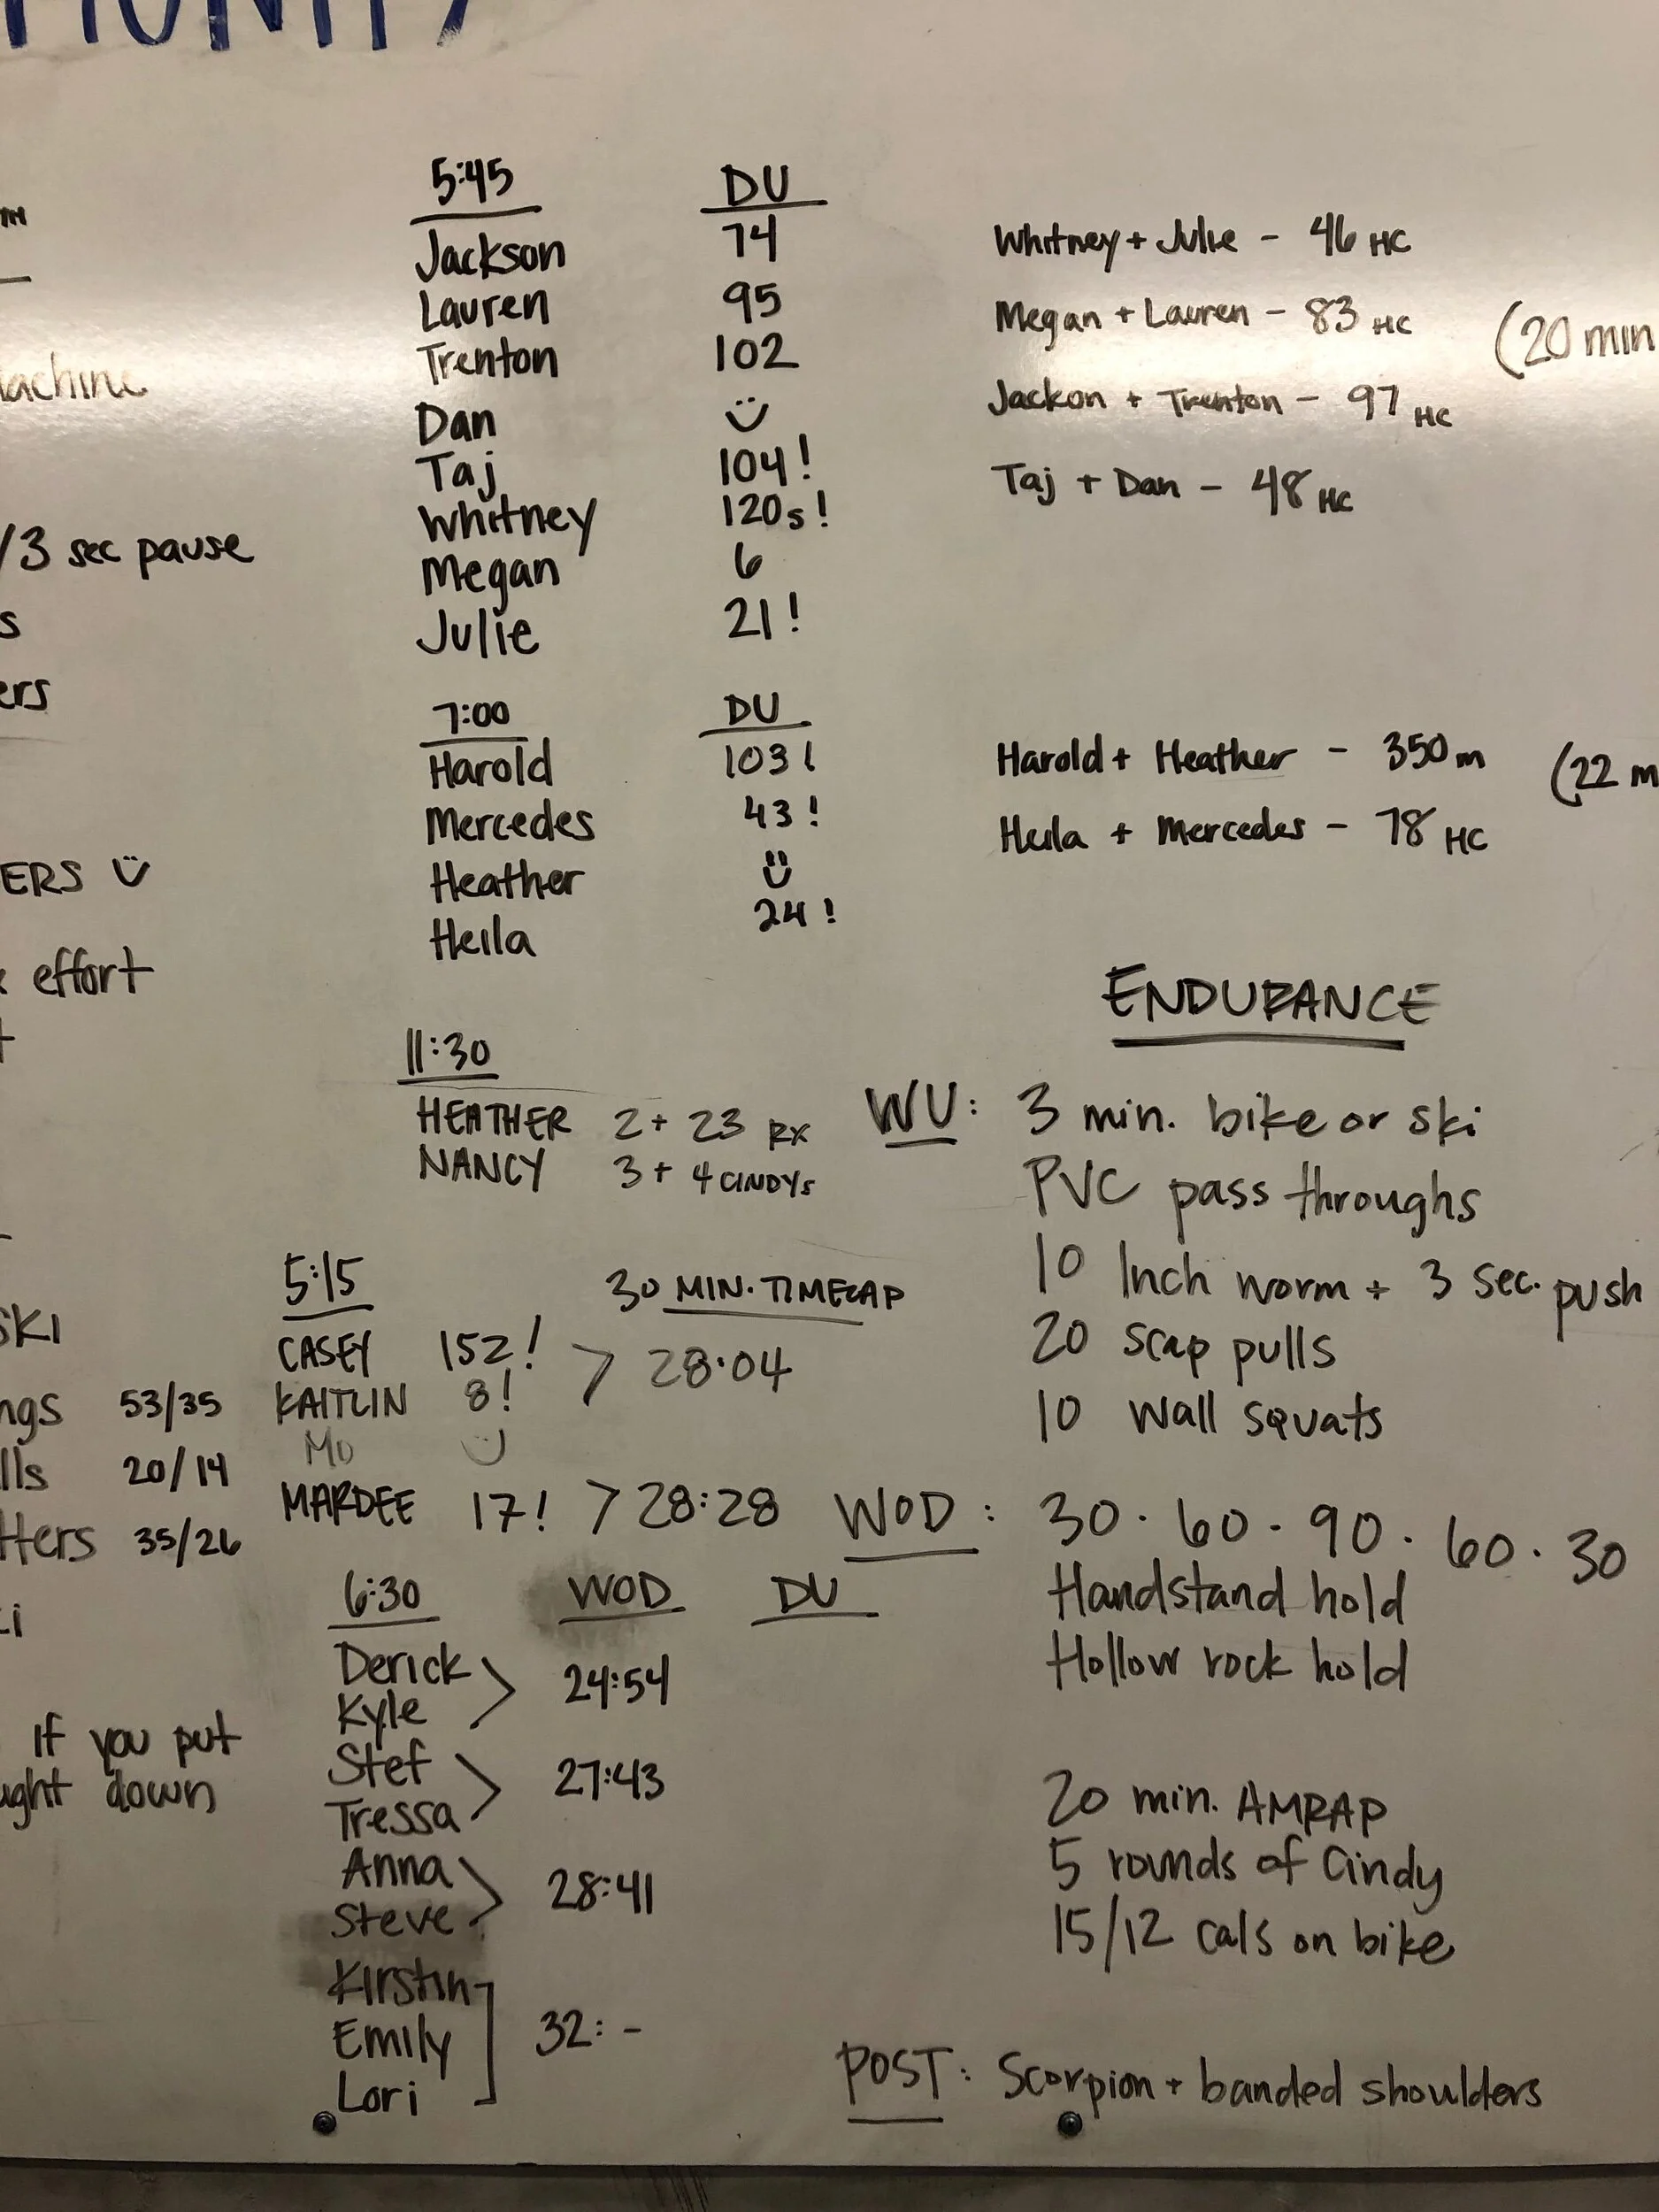 5:45 DU
Jackson 74
Lauren 95
Trenton 102
Dan
Taj 104!
Whitney 120s!
Megan 6
Julie 21!
Whitney + Julie - 46 HC
Megan + Lauren - 83 HC
(20 min
Jackon + Trenton - 97 HC
Taj + Dan - 48 HC
/3 sec pause
7:00 DU
Harold 103!
Mercedes 43!
Heather
Heila 24!
Harold + Heather - 350m
(22 m
Heila + Mercedes - 78 HC
ERS
effort
11:30
HEATHER 2 + 23 RX
NANCY 3 + 4 CINDYs
5:15 30 MIN. TIMECAP
CASEY 152!
KAITLIN 8!
> 28:04
Mo
MARDEE 17! > 28:28
SKI
ngs 53/35
lls 20/14
tters 35/26
If you put
ught down
6:30 WOD DU
Derick
Kyle
24:54
Stef
Tressa
27:43
Anna
Steve
28:41
Kirstin
Emily
Lori
32: -
ENDURANCE
WU: 3 min. bike or ski
PVC pass throughs
10 Inch worm + 3 sec. push
20 scap pulls
10 wall squats
WOD: 30 · 60 · 90 · 60 · 30
Handstand hold
Hollow rock hold
20 min. AMRAP
5 rounds of Cindy
15/12 cals on bike
POST: Scorpion + banded shoulders